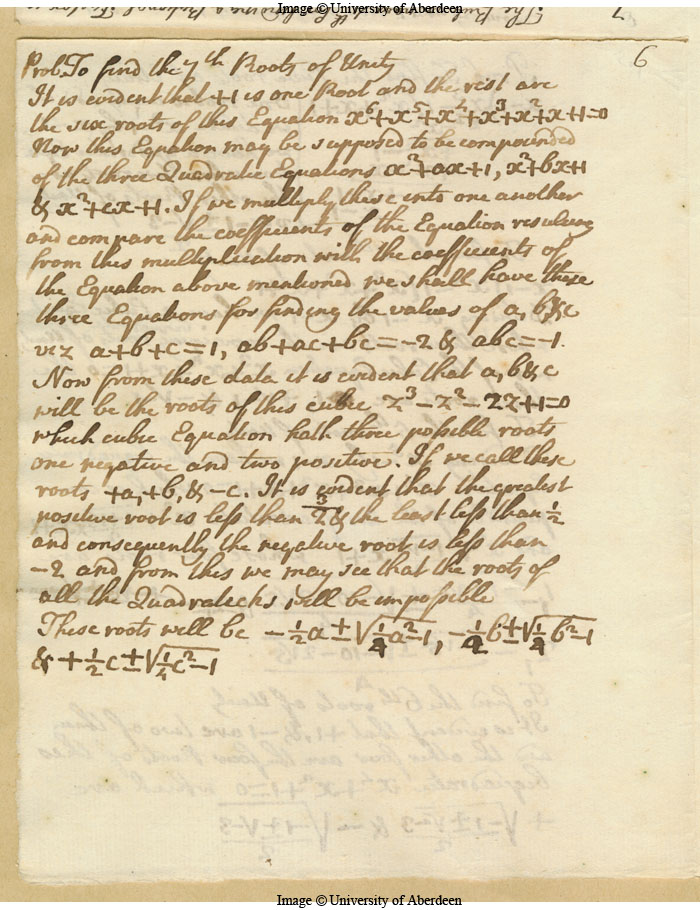 Image © University of Aberdeen
7
6
Prob. To find the 7th Roots of Unity
It is evident that +1 is one Root and the rest are
the six roots of this Equation x⁶+x⁵+x⁴+x³+x²+x+1=0
Now this Equation may be supposed to be compounded
of the three Quadratic Equations x²+ax+1, x²+bx+1
& x²+cx+1. If we multiply these into one another
and compare the coefficients of the Equation resulting
from this multiplication with the coefficients of
the Equation above mentioned we shall have these
three Equations for finding the values of a, b, & c
viz a+b+c=1, ab+ac+bc=-2 & abc=-1.
Now from these data it is evident that a, b & c
will be the roots of this cubic z³-z²-2z+1=0
which cubic Equation hath three possible roots
one negative and two positive. If we call these
roots +a, +b, & -c. It is evident that the greatest
positive root is less than 2 & the least less than ½
and consequently the negative root is less than
-2 and from this we may see that the roots of
all the Quadraticks will be impossible
These roots will be -½a±√¼a²-1, -½b±√¼b²-1
& +½c±√¼c²-1
Image © University of Aberdeen